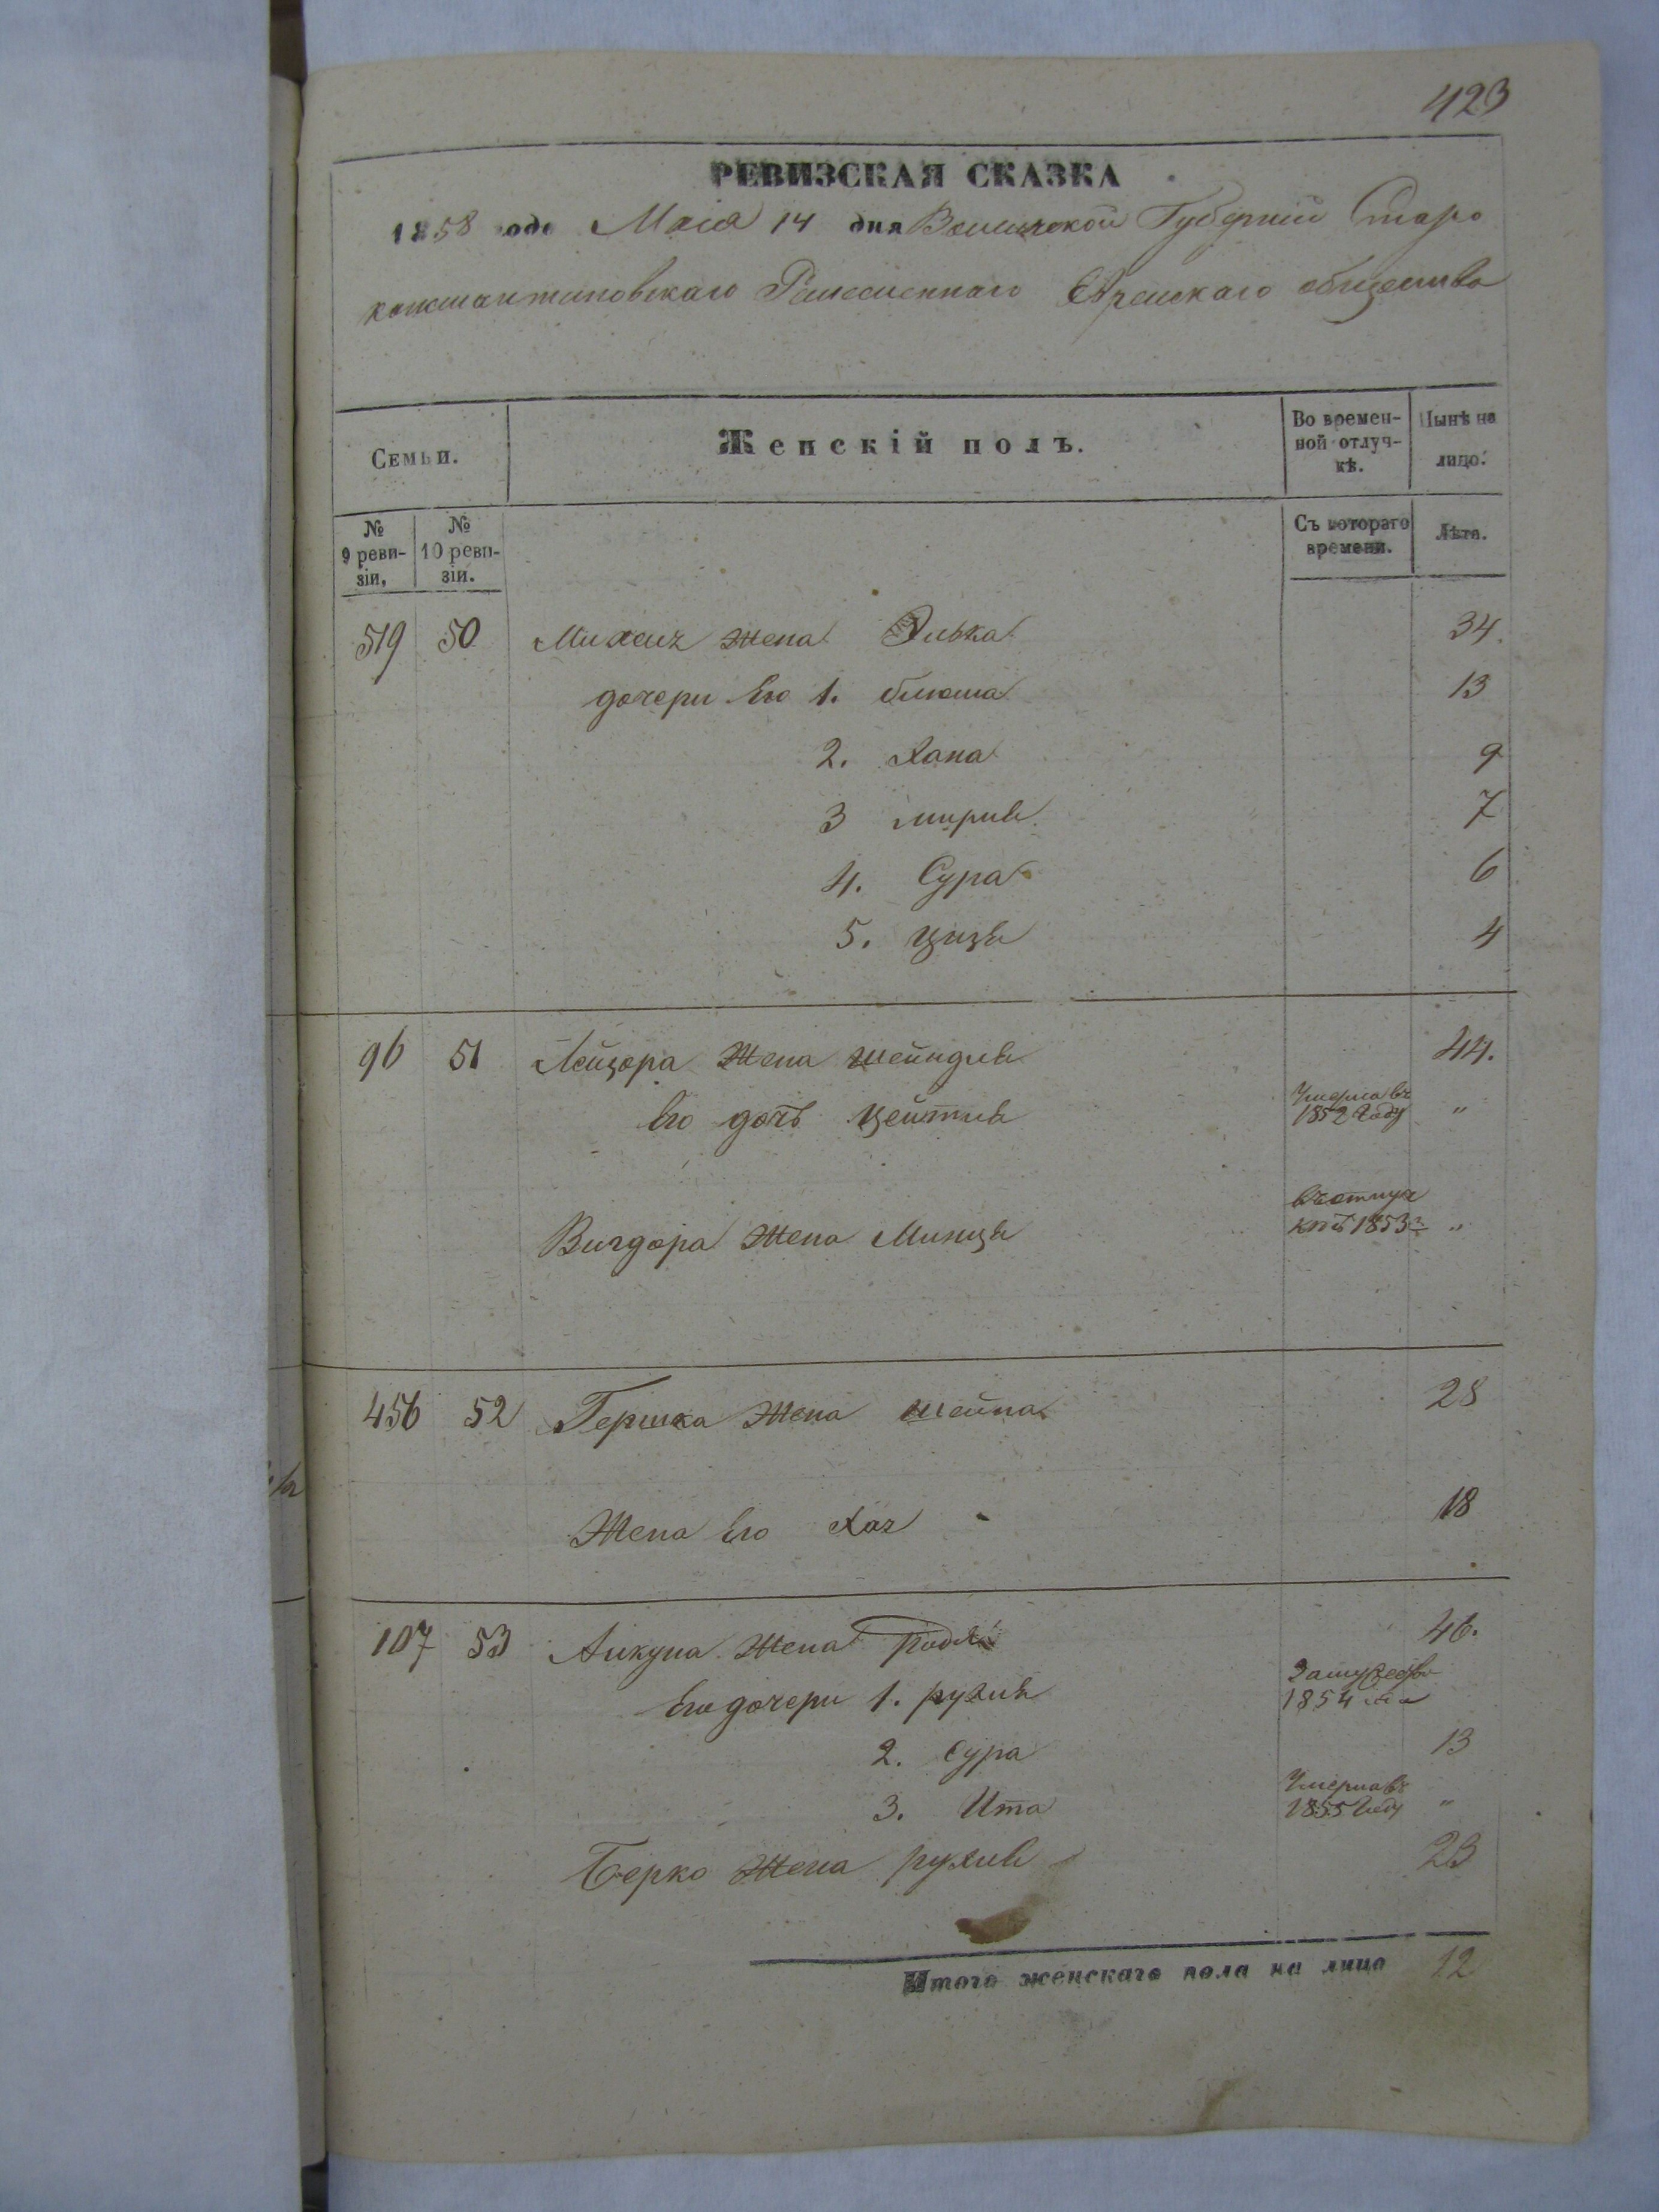 423
РЕВИЗСКАЯ СКАЗКА
1858 года Маія 14 дня Волынской Губерніи Старо
константиновскаго Ремесленнаго Еврейскаго общества
Семьи.
Женскій полъ.
Во времен-
ной отлуч-
кѣ.
Нынѣ на
лицо.
№
9 реви-
зіи,
№
10 реви-
зіи.
Съ котораго
времени.
Лѣта.
519 50 Михеля жена Элька 34.
дочери Его 1. блюма 13
2. Хана 9
3 мирля 7
4. Сура 6
5. Цизя 4
96 51 Лейзора Жена шейндля 44.
Его дочь Цейтля Умерла въ 1852 Году "
Вигдора Жена Минця 1853 "
456 52 Гершка Жена шейна 28
Жена Его Хая 18
107 53 Жена 46.
Его дочери 1. рухля 1854
2. Сура 13
3. Ита Умерла въ 1855 Году "
Берко Жена рухля 23
Итого женскаго пола на лицо 12